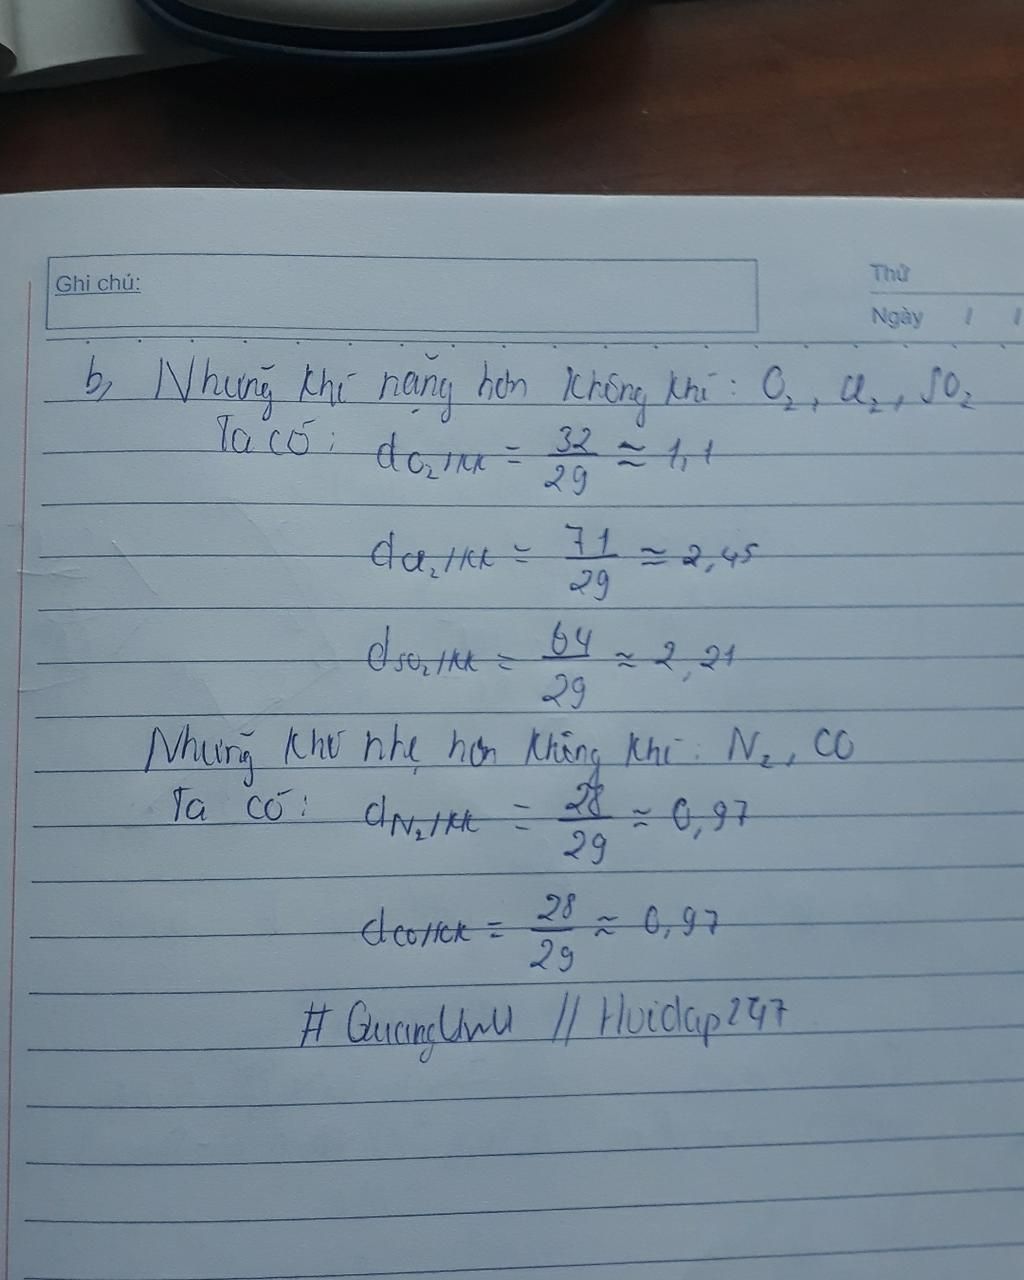 Ghi chú:
Thứ
Ngày / /
b, Những khí nặng hơn không khí: O₂, Cl₂, SO₂
Ta có: dO₂/KK = 32/29 ≈ 1,1
dCl₂/KK = 71/29 ≈ 2,45
dSO₂/KK = 64/29 ≈ 2,21
Những khí nhẹ hơn không khí: N₂, CO
Ta có: dN₂/KK = 28/29 ≈ 0,97
dCO/KK = 28/29 ≈ 0,97
# // Hoidap247